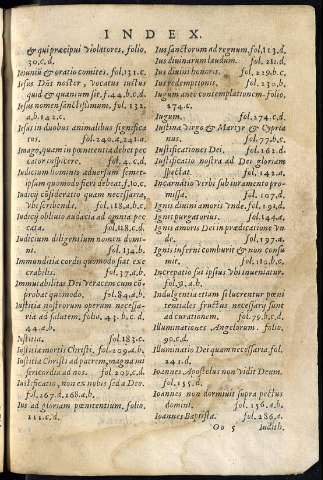 INDEX.
& qui præcipui Violatores. folio.
30.c.d.
Ieiuniũ & oratio comites. fol.131.c.
Iesus Dñs noster, vocatus inctus
quid & quanti sit. f.44.b.c.d.
Iesus nomen sanctissimum. fol. 132.
a.b.142.c.
Iesus in duobus animalibus significa
tus. fol.240.d.241.a.
Imago, quam in pœnitentia debet pec
cator inspicere. fol.4.c.d.
Iudicium hominis aduersum semet-
ipsum quomodo fieri debeat. f.10.c.
Iudicij cõsideratio quam necessaria,
Vbi scribenda. fol.118.a.b.c.
Iudicij obliuio audacia ad omnia pec
cata. fol.118.c.d.
Iudicium diligens in nomen domi-
ni. fol.134.b.
Immunditia cordis quomodo fiat exe
crabilis. fol.37.a.b.
Immutabilitas Dei verax cum cõ-
probat quomodo. fol.84.a.b.
Iustitia nostrorum operum necessa-
ria ad salutem. folio, 43. b.c.d.
44.a.b.
Iustitia. fol.183.c.
Iustitia mortis Christi. 259.a.b.
Iustitia Christi ad patrem, magna mi
sericordia ad nos. fol.209.c.d.
Iustificatio, non ex nobis sed a Deo.
fol.267.d.268.a.b.
Ius ad gloriam pœnitentium. folio.
212.c.d.
Ius sanctorum ad regnum. fol.213.d.
Ius diuinarum laudum. fol. 211.d.
Ius diuini honoris. fol.229.b.c.
Ius redemptionis. fol.230.b.
Iugum ante contemplationem. folio,
274.c.
Iugum. fol.274.c.d.
Iustina Virgo & Martyr & Cypria
nus. fol.77.b.c.
Iustificationes Dei. fol.162.d.
Iustificatio nostra ad Dei gloriam
spectat. fol.142.a.
Incarnatio Verbi sub iuramento pro-
missa. fol.51.d.
Ignis diuini amoris Vnde. fol.192.d.
Ignis purgatorius. fol.144.a.
Ignis amoris Dei in prædicatione Vn
de. fol.197.a.
Ignis inferni comburit & non consu
mit. fol.110.b.
Increpatio sui ipsius Vbi inueniatur.
fol.9.a.b.
Indulgentia etiam si lucrentur pœni
tentiales fructus necessarij sunt
ad curationem. fol.79.b.c.d.
Illuminationes Angelorum. folio.
90.c.d.
Illuminatio Dei quam necessaria. fol.
241.d.
Ioannes Apostolus non Vidit Deum.
fol.135.d.
Ioannes non dormiuit supra pectus
domini. fol.156.a.b.
Ioannes Baptista. fol.286.a.
Oo 5 Iudith.